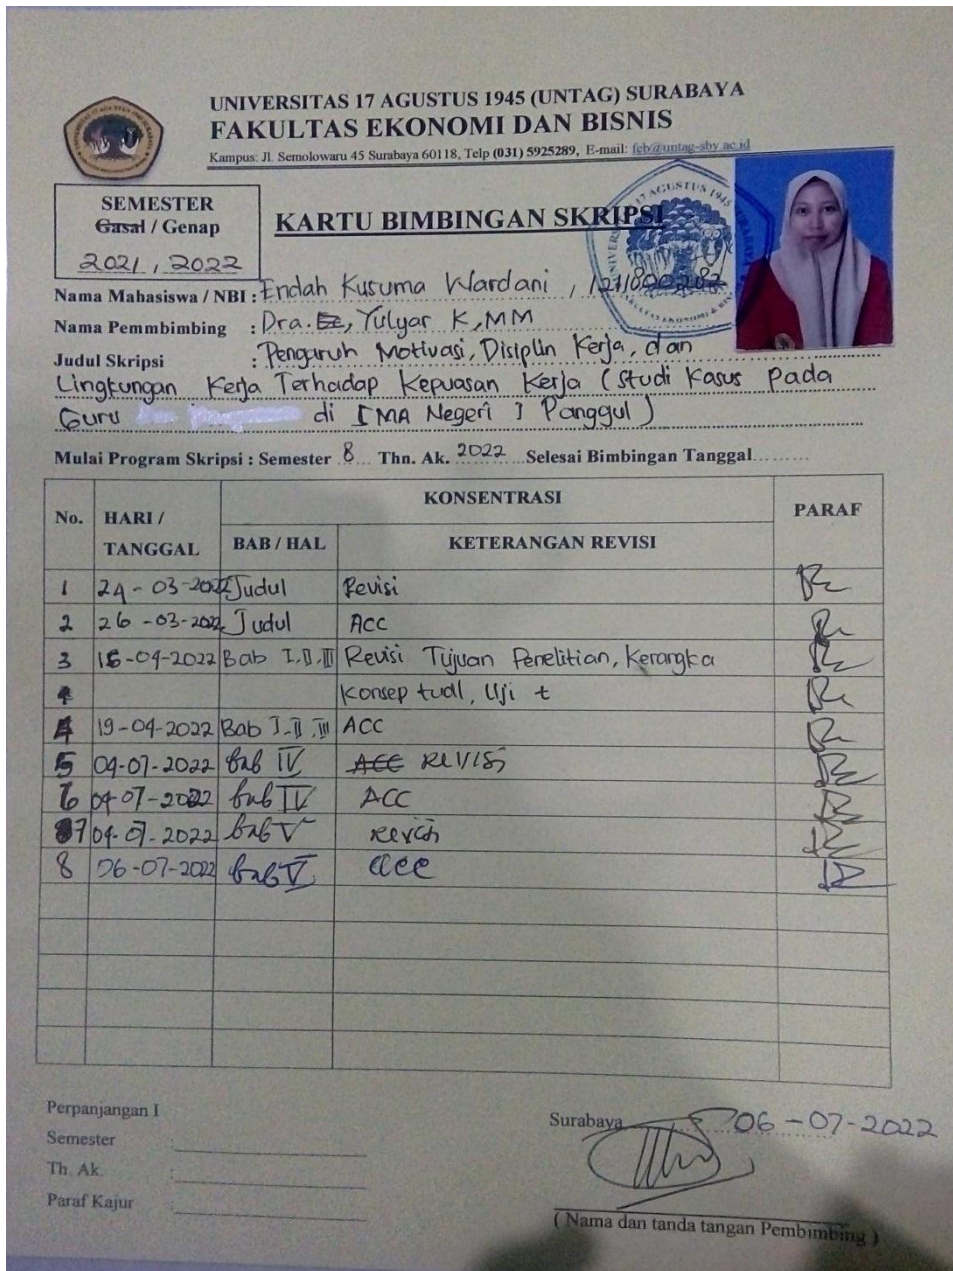 UNIVERSITAS 17 AGUSTUS 1945 (UNTAG) SURABAYA
FAKULTAS EKONOMI DAN BISNIS
Kampus: Jl. Semolowaru 45 Surabaya 60118, Telp (031) 5925289, E-mail: feb@untag-sby.ac.id
SEMESTER
Gasal / Genap
2021, 2022
KARTU BIMBINGAN SKRIPSI
Nama Mahasiswa / NBI : Endah Kusuma Wardani, 1211800282
Nama Pemmbimbing : Dra. Ec, Yulyar K, MM
Judul Skripsi : Pengaruh Motivasi, Disiplin Kerja, dan
Lingkungan Kerja Terhadap Kepuasan Kerja (Studi Kasus Pada
Guru di SMA Negeri 1 Panggul)
Mulai Program Skripsi : Semester 8 Thn. Ak. 2022 Selesai Bimbingan Tanggal
No. HARI / TANGGAL KONSENTRASI PARAF
BAB / HAL KETERANGAN REVISI
1 24-03-2022 Judul Revisi
2 26-03-2022 Judul ACC
3 Bab I, II, III Revisi Tujuan Penelitian, Kerangka
Konseptual, Uji t
4 19-04-2022 Bab I, II, III ACC
5 04-07-2022 bab IV ACC REVISI
6 04-07-2022 bab IV ACC
7 04-07-2022 bab V revisi
8 06-07-2022 bab V acc
Perpanjangan I
Semester :
Th. Ak. :
Paraf Kajur :
Surabaya 06-07-2022
( Nama dan tanda tangan Pembimbing )